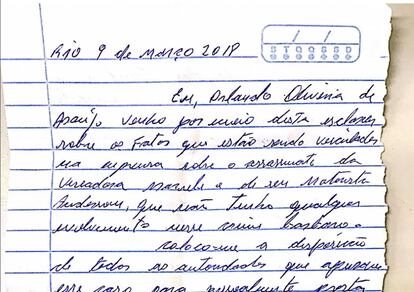 Rio 9 de março 2018
/ /
S T Q Q S S D
Eu, Orlando Oliveira de
Araújo venho por meio desta esclarecer
sobre os fatos que estão sendo veiculados
na imprensa sobre o assassinato da
Vereadora Marielle e de seu Motorista
Anderson, que não tenho qualquer
envolvimento nesse crime barbaro.
coloco-me a disposição
de todas as autoridades que apuram
esse caso para pessoalmente prestar